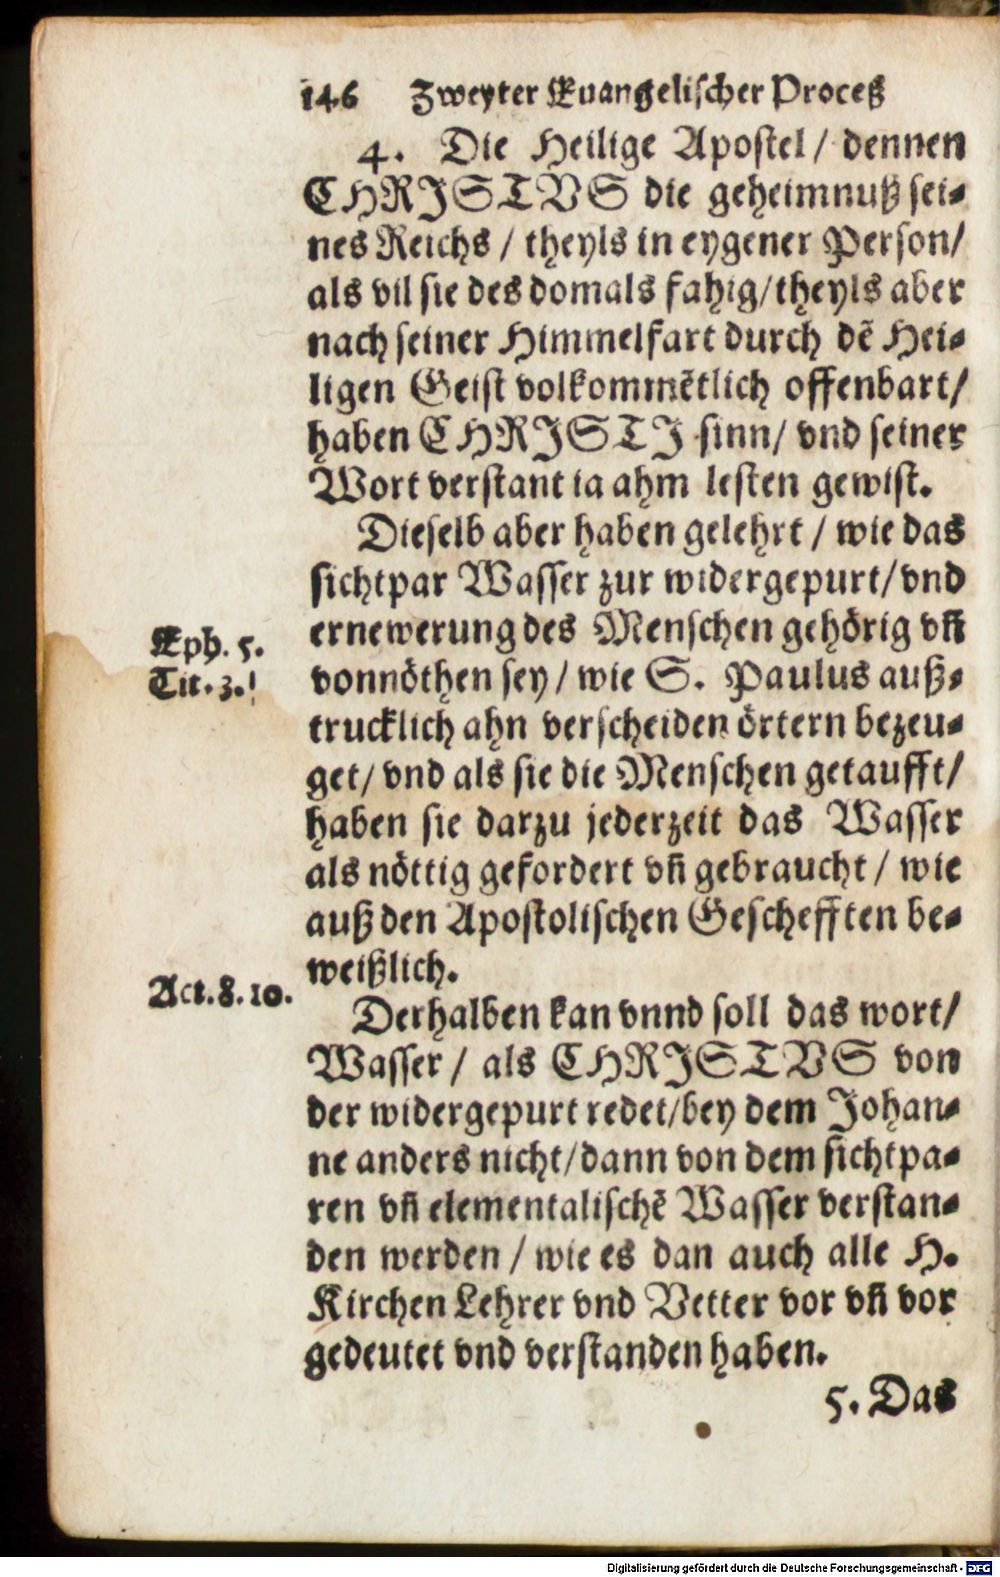 146 Zweyter Euangelischer Proceß
4. Die Heilige Apostel / dennen
CHRISTVS die geheimnuß sei⸗
nes Reichs / theyls in eygener Person/
als vil sie des domals fahig/theyls aber
nach seiner Himmelfart durch dẽ Hei⸗
ligen Geist volkommẽtlich offenbart/
haben CHRISTI sinn/ vnd seiner
Wort verstant ia ahm lesten gewist.
Dieselb aber haben gelehrt / wie das
sichtpar Wasser zur widergepurt/vnd
ernewerung des Menschen gehörig vñ
Eph. 5.
vonnöthen sey / wie S. Paulus auß⸗
Tit. 3.
trucklich ahn verscheiden örtern bezeu⸗
get/ vnd als sie die Menschen getaufft/
haben sie darzu jederzeit das Wasser
als nöttig gefordert vñ gebraucht / wie
auß den Apostolischen Geschefften be⸗
weißlich.
Act. 8. 10.
Derhalben kan vnnd soll das wort/
Wasser / als CHRISTVS von
der widergepurt redet/bey dem Johan⸗
ne anders nicht/dann von dem sichtpa⸗
ren vñ elementalischẽ Wasser verstan⸗
den werden / wie es dan auch alle H.
Kirchen Lehrer vnd Vetter vor vñ vor
gedeutet vnd verstanden haben.
5. Das
Digitalisierung gefördert durch die Deutsche Forschungsgemeinschaft - DFG